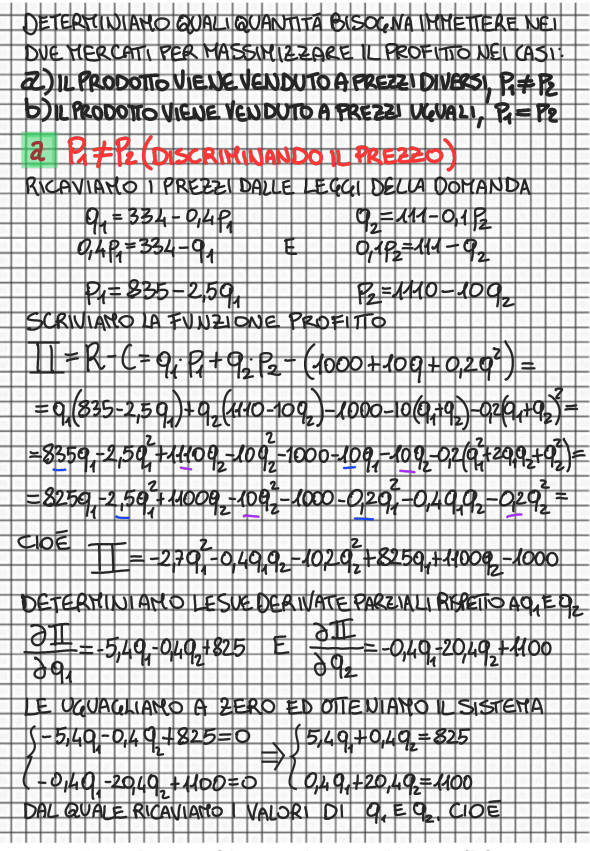 DETERMINIAMO QUALI QUANTITÁ BISOGNA IMMETTERE NEI
DUE MERCATI PER MASSIMIZZARE IL PROFITTO NEI CASI:
a) IL PRODOTTO VIENE VENDUTO A PREZZI DIVERSI, P₁≠P₂
b) IL PRODOTTO VIENE VENDUTO A PREZZI UGUALI, P₁=P₂
a P₁≠P₂ (DISCRIMINANDO IL PREZZO)
RICAVIAMO I PREZZI DALLE LEGGI DELLA DOMANDA
q₁=334-0,4p₁ q₂=111-0,1p₂
0,4p₁=334-q₁ E 0,1p₂=111-q₂
p₁=835-2,5q₁ p₂=1110-10q₂
SCRIVIAMO LA FUNZIONE PROFITTO
Π=R-C=q₁·p₁+q₂·p₂-(1000+10q+0,2q²)=
=q₁(835-2,5q₁)+q₂(1110-10q₂)-1000-10(q₁+q₂)-0,2(q₁+q₂)²=
=835q₁-2,5q₁²+1110q₂-10q₂²-1000-10q₁-10q₂-0,2(q₁²+2q₁q₂+q₂²)=
=825q₁-2,5q₁²+1100q₂-10q₂²-1000-0,2q₁²-0,4q₁q₂-0,2q₂²=
CIOÉ Π=-2,7q₁²-0,4q₁q₂-10,2q₂²+825q₁+1100q₂-1000
DETERMINIAMO LE SUE DERIVATE PARZIALI RISPETTO A q₁ E q₂
∂Π/∂q₁=-5,4q₁-0,4q₂+825 E ∂Π/∂q₂=-0,4q₁-20,4q₂+1100
LE UGUAGLIAMO A ZERO ED OTTENIAMO IL SISTEMA
{-5,4q₁-0,4q₂+825=0 ⇒ {5,4q₁+0,4q₂=825
-0,4q₁-20,4q₂+1100=0 0,4q₁+20,4q₂=1100
DAL QUALE RICAVIAMO I VALORI DI q₁ E q₂. CIOÉ